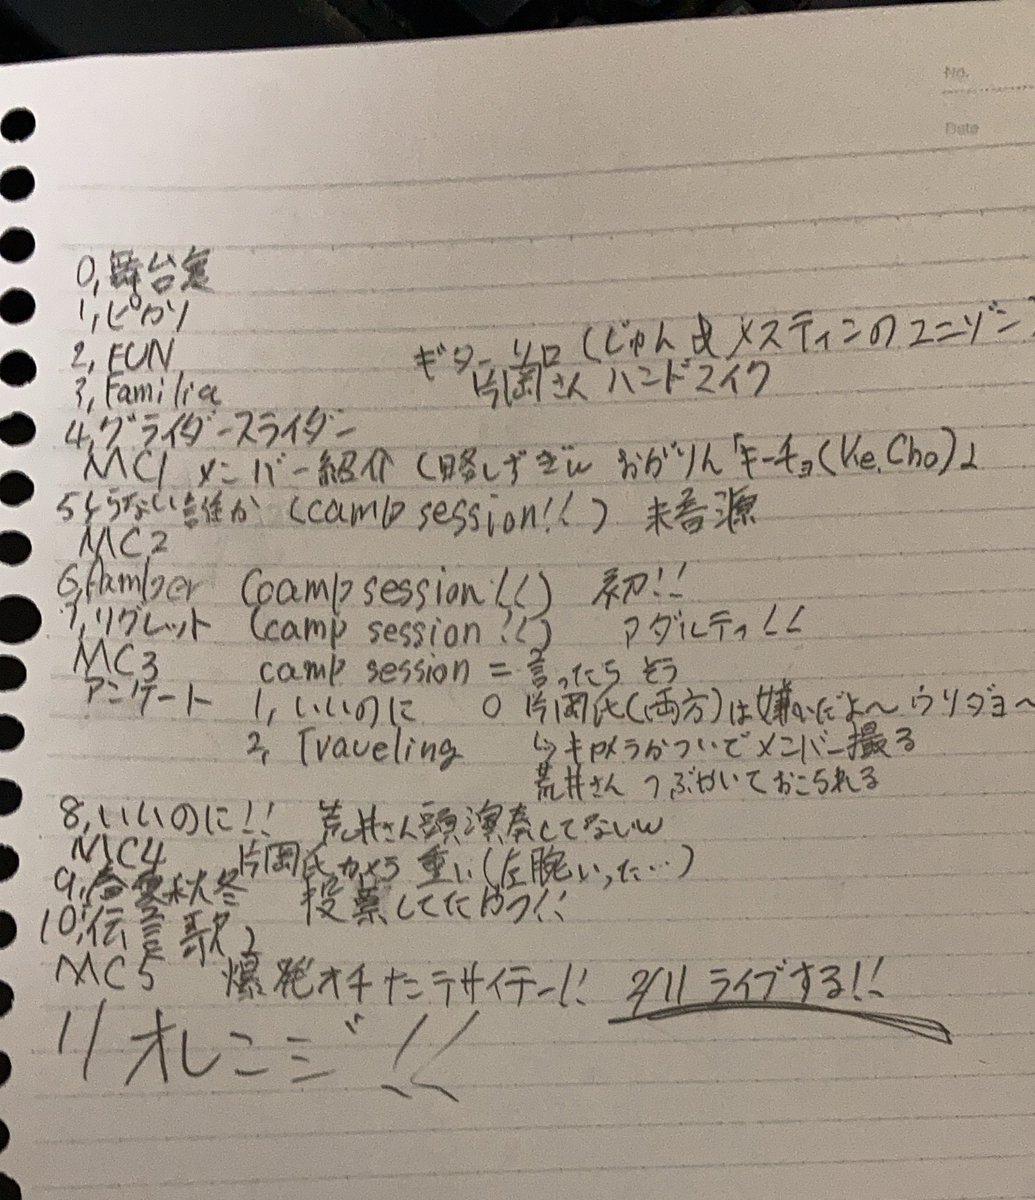 No.
Date
0, 舞台裏
1, ピカリ
2, FUN ギターソロ (じゅん氏メスティンのユニゾン)
3, Familia 片岡さん ハンドマイク
4, グライダースライダー
MC1 メンバー紹介 (略しすぎw おがりん「キーチョ(Ke,Cho)」
5 らない誰か (camp session!!) 未音源
MC2
6, Amber (camp session!!) 初!!
7, リグレット (camp session!!) アダルティ!!
MC3 camp session = 言ったらそう
アンケート 1, いいのに 0 片岡氏(両方)は嫌いだよ〜ウソダヨ〜
2, Traveling ↳キャメラかついでメンバー撮る
荒井さん つぶやいておこられる
8, いいのに!! 荒井さん頭演奏してないw
MC4 片岡氏カメラ重い(左腕いった…)
9, 春夏秋冬 投票してたやつ!!
10, 伝言歌
MC5 爆発オチナンテサイテー!! 2/11 ライブする!!
11 オレンジ!!